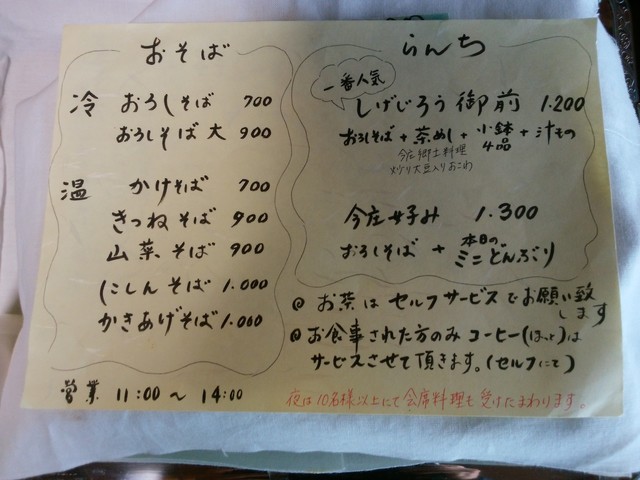 おそば
冷 おろしそば 700
おろしそば 大 900
温 かけそば 700
きつねそば 900
山菜そば 900
にしんそば 1.000
かきあげそば 1.000
営業 11:00〜14:00
らんち
一番人気
しげじろう御前 1.200
おろしそば+茶めし+小鉢4品+汁もの
今庄郷土料理
炒り大豆入りおこわ
今庄好み 1.300
おろしそば + 本日のミニどんぶり
@ お茶は セルフサービスでお願い致します
@ お食事された方のみ コーヒー(ほっと)は
サービスさせて頂きます。(セルフにて)
夜は10名様以上にて会席料理も受けたまわります。